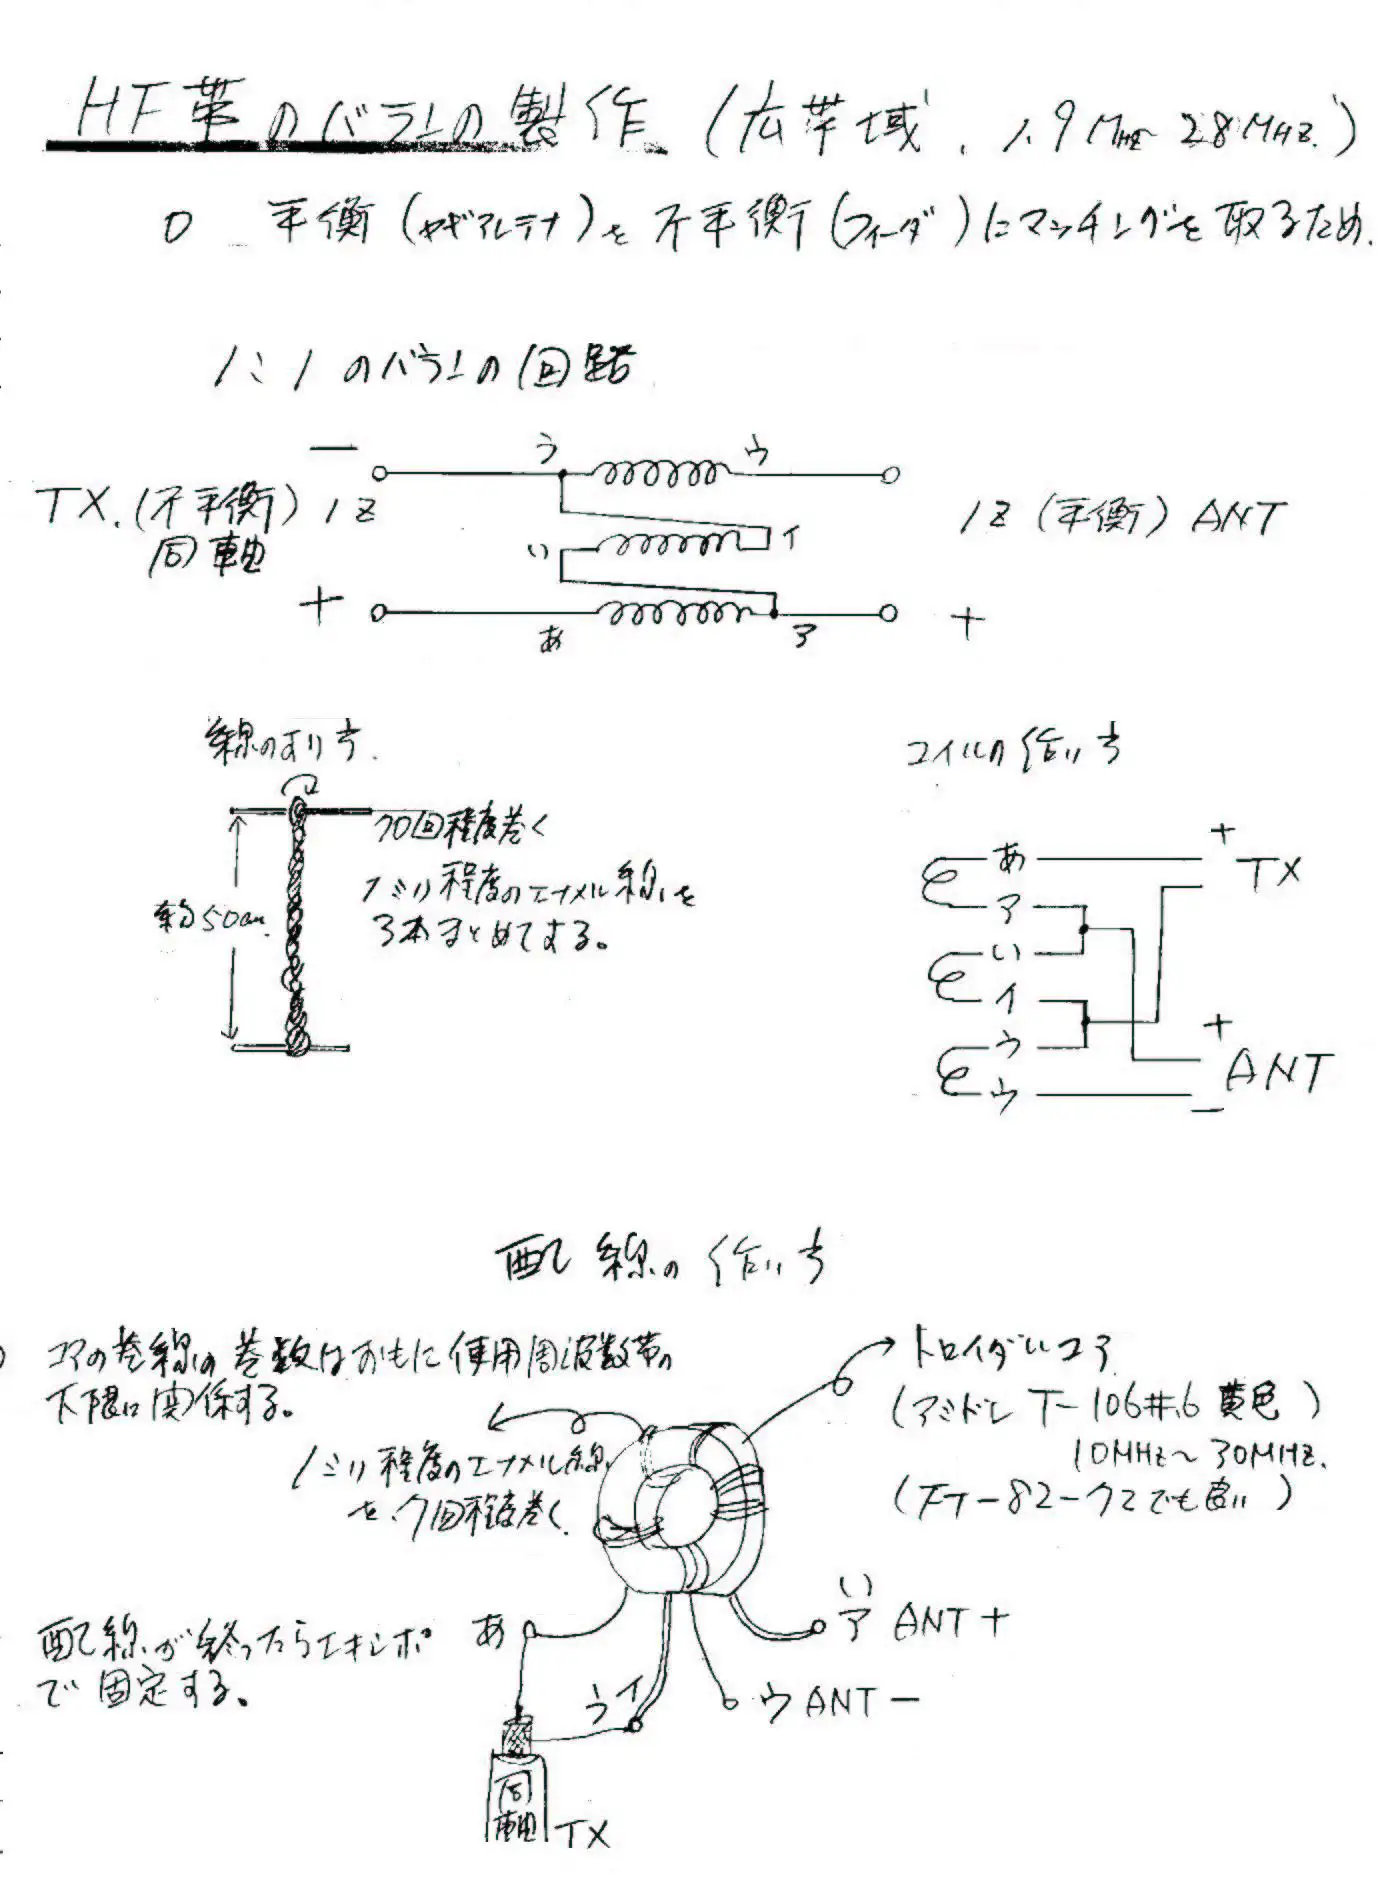 HF帯のバランの製作 (広帯域、1.9MHz~28MHz.)
○ 平衡(ヤギアンテナ)を不平衡(フィーダ)にマッチングを取るため.
1:1のバランの回路
− う ウ
TX.(不平衡) 1Z
同軸
1Z (平衡) ANT
い イ
+ あ ア +
線のより方.
70回程度巻く
1ミリ程度のエナメル線を
3本まとめてする。
約50cm.
コイルの作り方
あ + TX
ア
い
イ
う + ANT
ウ −
配線の作り方
コアの巻線の巻数はおもに使用周波数帯の
下限に関係する。
1ミリ程度のエナメル線
を、7回程度巻く.
トロイダルコア
(アミドン T-106#6 黄色)
10MHz~30MHz.
(FT-82-72でも良い)
配線が終ったらエキシポ
で固定する。
あ
いア ANT+
うイ
ウ ANT −
同軸 TX